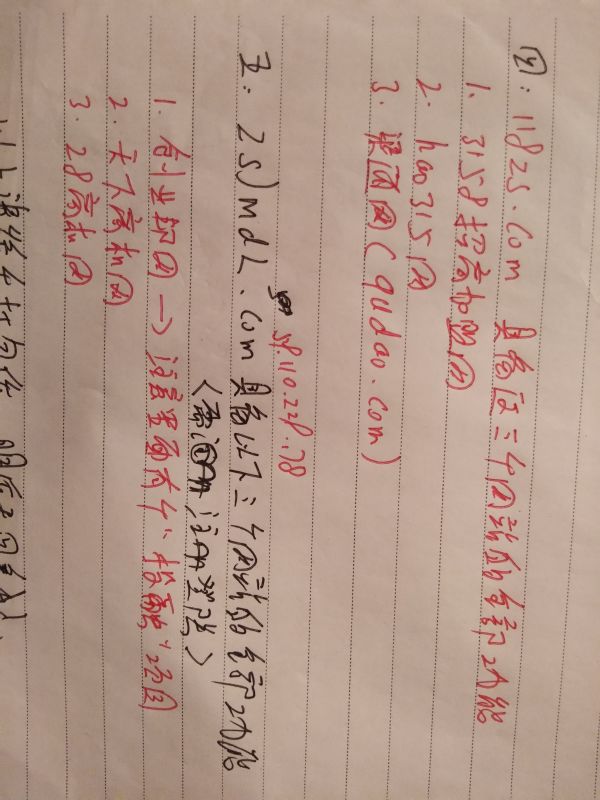 四：118zs.com 具备这三个网站的全部功能
1. 3158招商加盟网
2. hao315网
3. 渠道网(qudao.com)
59.110.229.178
五：ZSJmdL.com 具备以下三个网站的全部功能
注册登陆>
1. 创业邦网→注意里面有个"投融"项目
2. 天下商机网
3. 28商机网